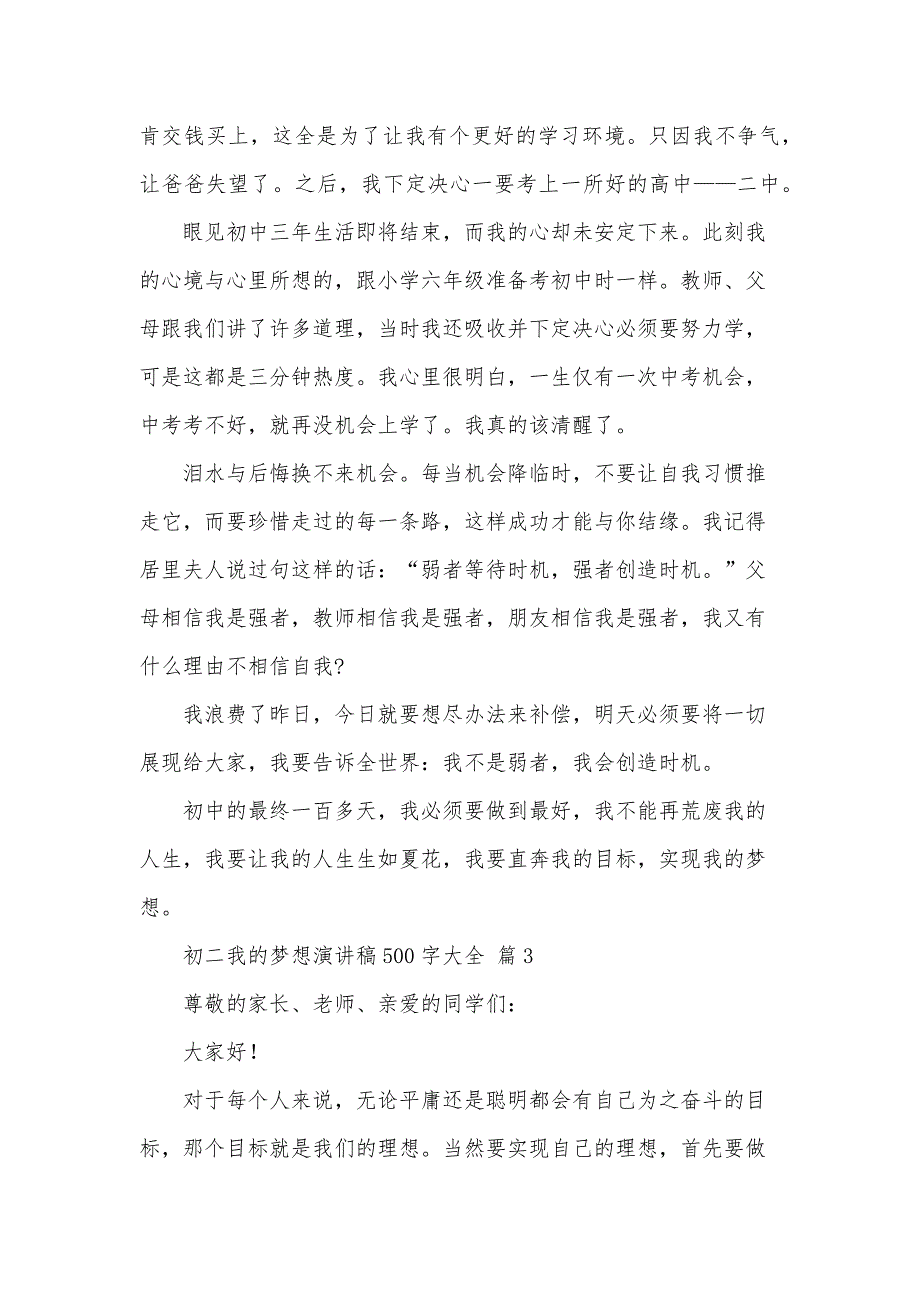 肯交钱买上，这全是为了让我有个更好的学习环境。只因我不争气，
让爸爸失望了。之后，我下定决心一要考上一所好的高中——二中。
眼见初中三年生活即将结束，而我的心却未安定下来。此刻我
的心境与心里所想的，跟小学六年级准备考初中时一样。教师、父
母跟我们讲了许多道理，当时我还吸收并下定决心必须要努力学，
可是这都是三分钟热度。我心里很明白，一生仅有一次中考机会，
中考考不好，就再没机会上学了。我真的该清醒了。
泪水与后悔换不来机会。每当机会降临时，不要让自我习惯推
走它，而要珍惜走过的每一条路，这样成功才能与你结缘。我记得
居里夫人说过句这样的话：“弱者等待时机，强者创造时机。”父
母相信我是强者，教师相信我是强者，朋友相信我是强者，我又有
什么理由不相信自我?
我浪费了昨日，今日就要想尽办法来补偿，明天必须要将一切
展现给大家，我要告诉全世界：我不是弱者，我会创造时机。
初中的最终一百多天，我必须要做到最好，我不能再荒废我的
人生，我要让我的人生生如夏花，我要直奔我的目标，实现我的梦
想。
初二我的梦想演讲稿500字大全 篇3
尊敬的家长、老师、亲爱的同学们：
大家好！
对于每个人来说，无论平庸还是聪明都会有自己为之奋斗的目
标，那个目标就是我们的理想。当然要实现自己的理想，首先要做